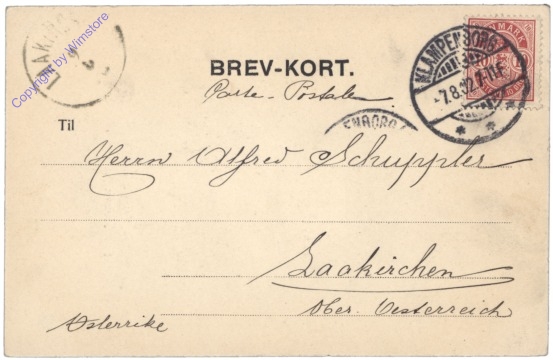 Copyright by Wimstore
BREV-KORT.
Carte-Postale
KLAMPENBORG
7.8.02.7-11F
Til
Herrn Alfred Schuppler
Laakirchen
Ober. Oesterreich
Østerrike